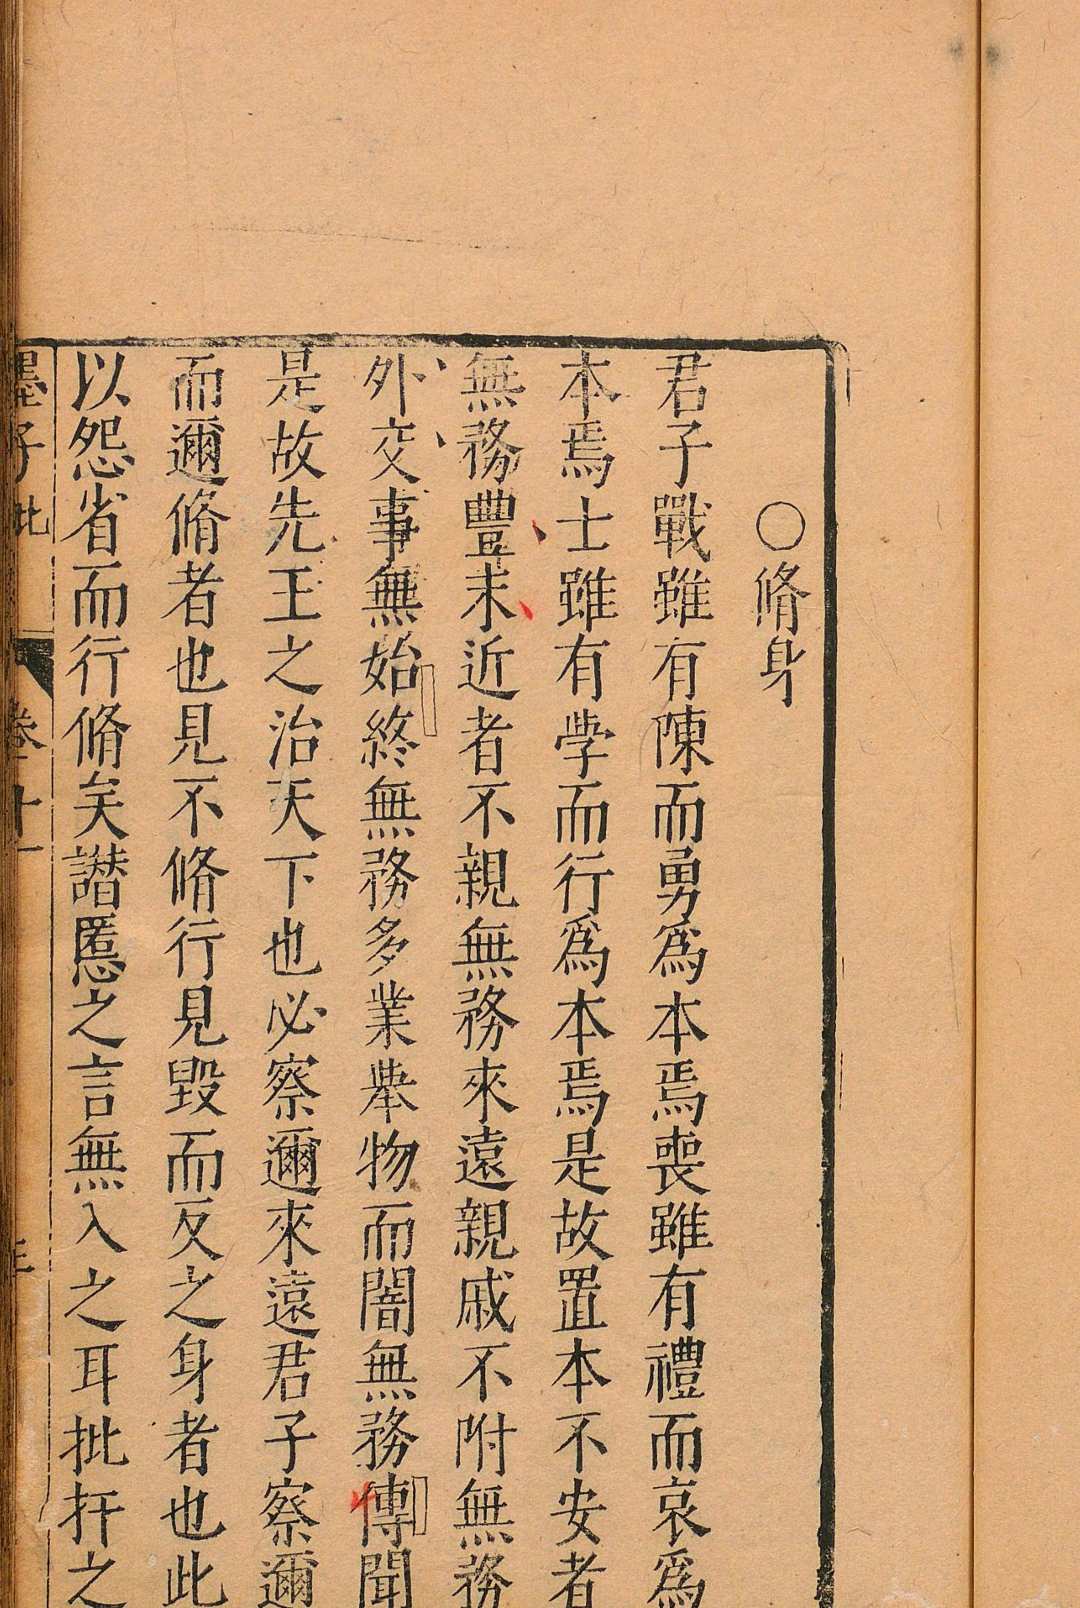 ○脩身
君子戰雖有陳而勇爲本焉喪雖有禮而哀爲
本焉士雖有學而行爲本焉是故置本不安者
無務豐末近者不親無務來遠親戚不附無務
外交事無始終無務多業舉物而闇無務傳聞
是故先王之治天下也必察邇來遠君子察邇
而邇脩者也見不脩行見毀而反之身者也此
以怨省而行脩矣譖慝之言無入之耳批扞之
墨子批 卷十一